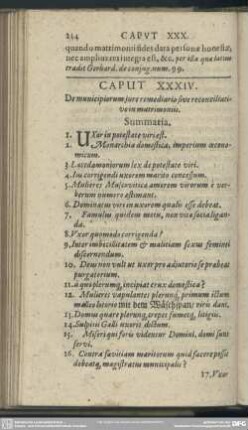 244 CAPVT XXX.
quando matrimonii fides data personæ honestæ,
nec amplius era integra est, &c. per ista quæ latius
tradit Gerhard. de conjug. num. 99.
CAPUT XXXIV.
De municipiorum jure remediario sive reconciliati-
vo in matrimonio.
Summaria.
1. UXor in potestate viri est.
2. Monarchia domestica, imperium œcono-
micum.
3. Lacedæmoniorum lex de potestate viri.
4. Jus corrigendi uxorem marito concessum.
5. Mulieres Muscoviticæ amorem virorum è ver-
berum numero æstimant.
6. Dominatus viri in uxorem qualis esse debeat.
7. Famulus quidem mein, non vice socia ligan-
da.
8. Vxor quomodo corrigenda?
9. Inter imbecillitatem & malitiam sexus feminei
discernendum.
10. Deus non vult ut uxor pro adjutorio se præbeat
purgatorium.
11. à quo plerumq; incipiat crux domestica?
12. Mulieres vapulantes plerumq; primum ictum
mit dem Wäscher viris dant.
13. Domus quare plerumq; repet fumus, litigiis.
14. Sulpitii Galli uxoris dictum.
15. Miseri qui foris videntur Domini, domi sunt
servi.
16. Contra sævitiam maritorum quid facere possit
debeatq; magistratus municipalis?
17. Vxor